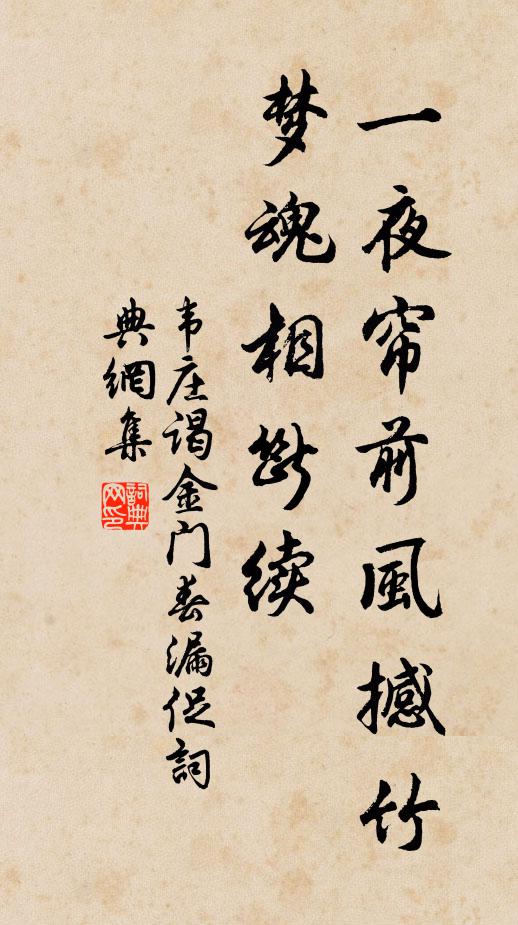 一夜帘前風撼竹
梦魂相斷续
韦庄谒金门春漏促詞
典網集
詞典网印